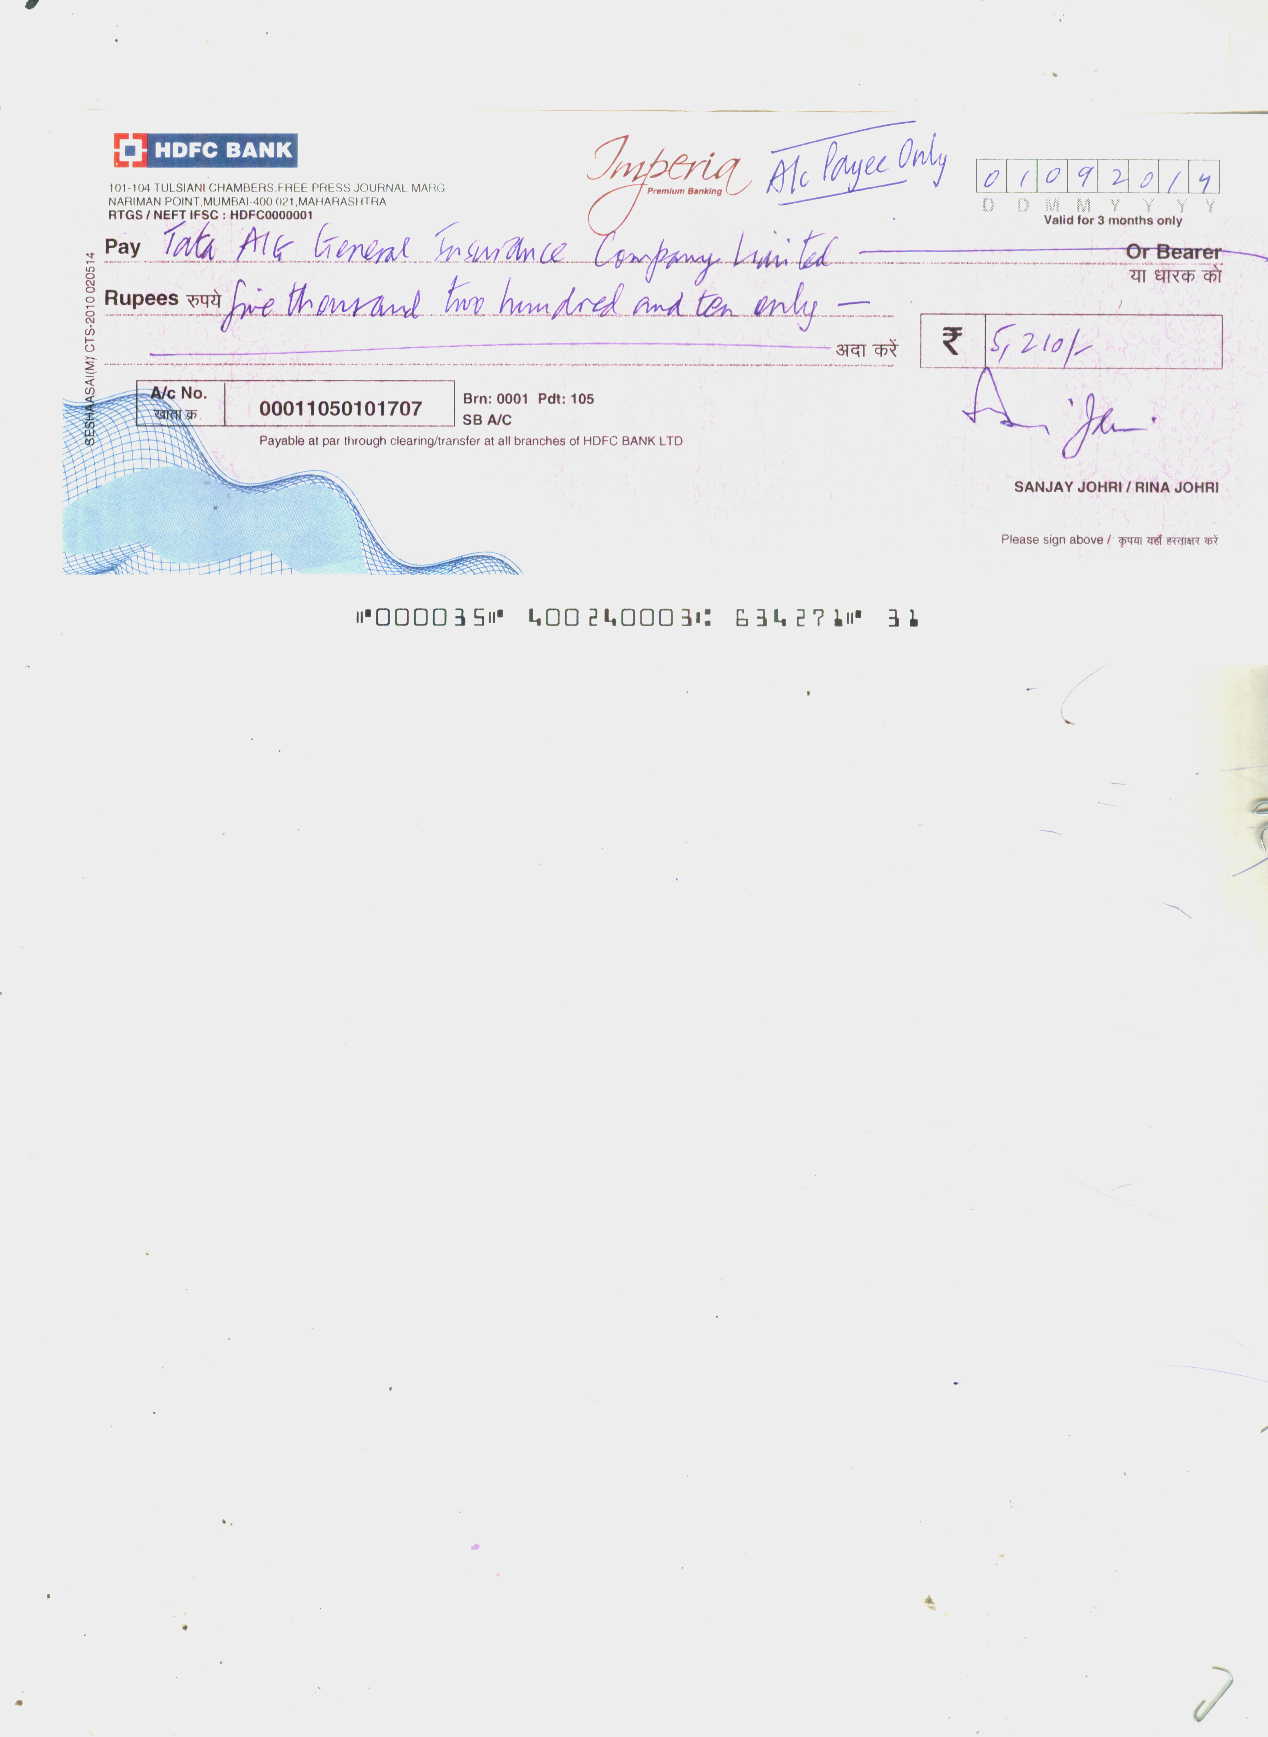 HDFC BANK
Imperia
Premium Banking
A/c Payee Only
01092014
101-104 TULSIANI CHAMBERS,FREE PRESS JOURNAL MARG
NARIMAN POINT,MUMBAI-400 021,MAHARASHTRA
RTGS / NEFT IFSC : HDFC0000001
D D M M Y Y Y Y
Valid for 3 months only
Pay Tata AIG General Insurance Company Limited Or Bearer
या धारक को
Rupees रुपये five thousand two hundred and ten only —
अदा करें ₹ 5,210/-
A/c No.
खाता क्र.
00011050101707
Brn: 0001 Pdt: 105
SB A/C
Payable at par through clearing/transfer at all branches of HDFC BANK LTD
SESHAASAI(M)/ CTS-2010 020514
SANJAY JOHRI / RINA JOHRI
Please sign above / कृपया यहाँ हस्ताक्षर करें
⑈000035⑈ 400240003⑆ 634271⑈ 31